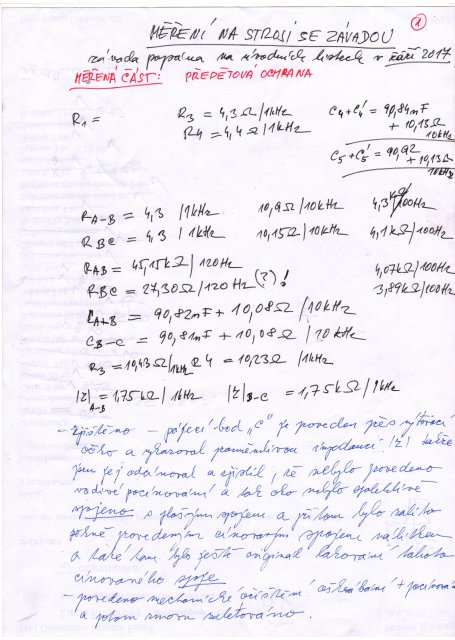 ①
MĚŘENÍ NA STROJI SE ZÁVADOU
závada popsána na úvodních listech v září 2017
MĚŘENÁ ČÁST: PŘEDĚTOVÁ OCHRANA
R1 = R3 = 4,3Ω/1kHz C4+C4' = 90,84nF
R4 = 4,4Ω/1kHz + 10,13Ω
10kHz
C5+C5' = 90,92
+ 10,13Ω
10kHz
RA-B = 4,3 /1kHz 10,9Ω/10kHz 4,3 /100Hz
RBC = 4,3 /1kHz 10,15Ω/10kHz 4,1kΩ/100Hz
RAB = 45,15kΩ/120Hz 4,07kΩ/100Hz
RBC = 27,30Ω/120Hz (?)! 3,89kΩ/100Hz
CA+B = 90,82nF + 10,08Ω/10kHz
CB-C = 90,81nF + 10,08Ω/10kHz
R3 = 10,43Ω/1kHz R4 = 10,23Ω /1kHz
|Z|A-B = 1,75kΩ/1kHz |Z|B-C = 1,75kΩ/1kHz
- Zjištěno - pájecí bod „C" je proveden přes nýtovací
očko a vykazoval proměnlivou impedanci |Z| takže
jsem jej a zjistil, že nebylo provedeno
pocínování a tak oko nebylo
spojeno s plošným spojem a přitom bylo zalito
pěkně provedeným cínovaným spojem
a také tam bylo ještě originál lakování tohoto
cínovaného spoje
- provedeno mechanické očištění + pocínování
a potom znovu zaletováno.